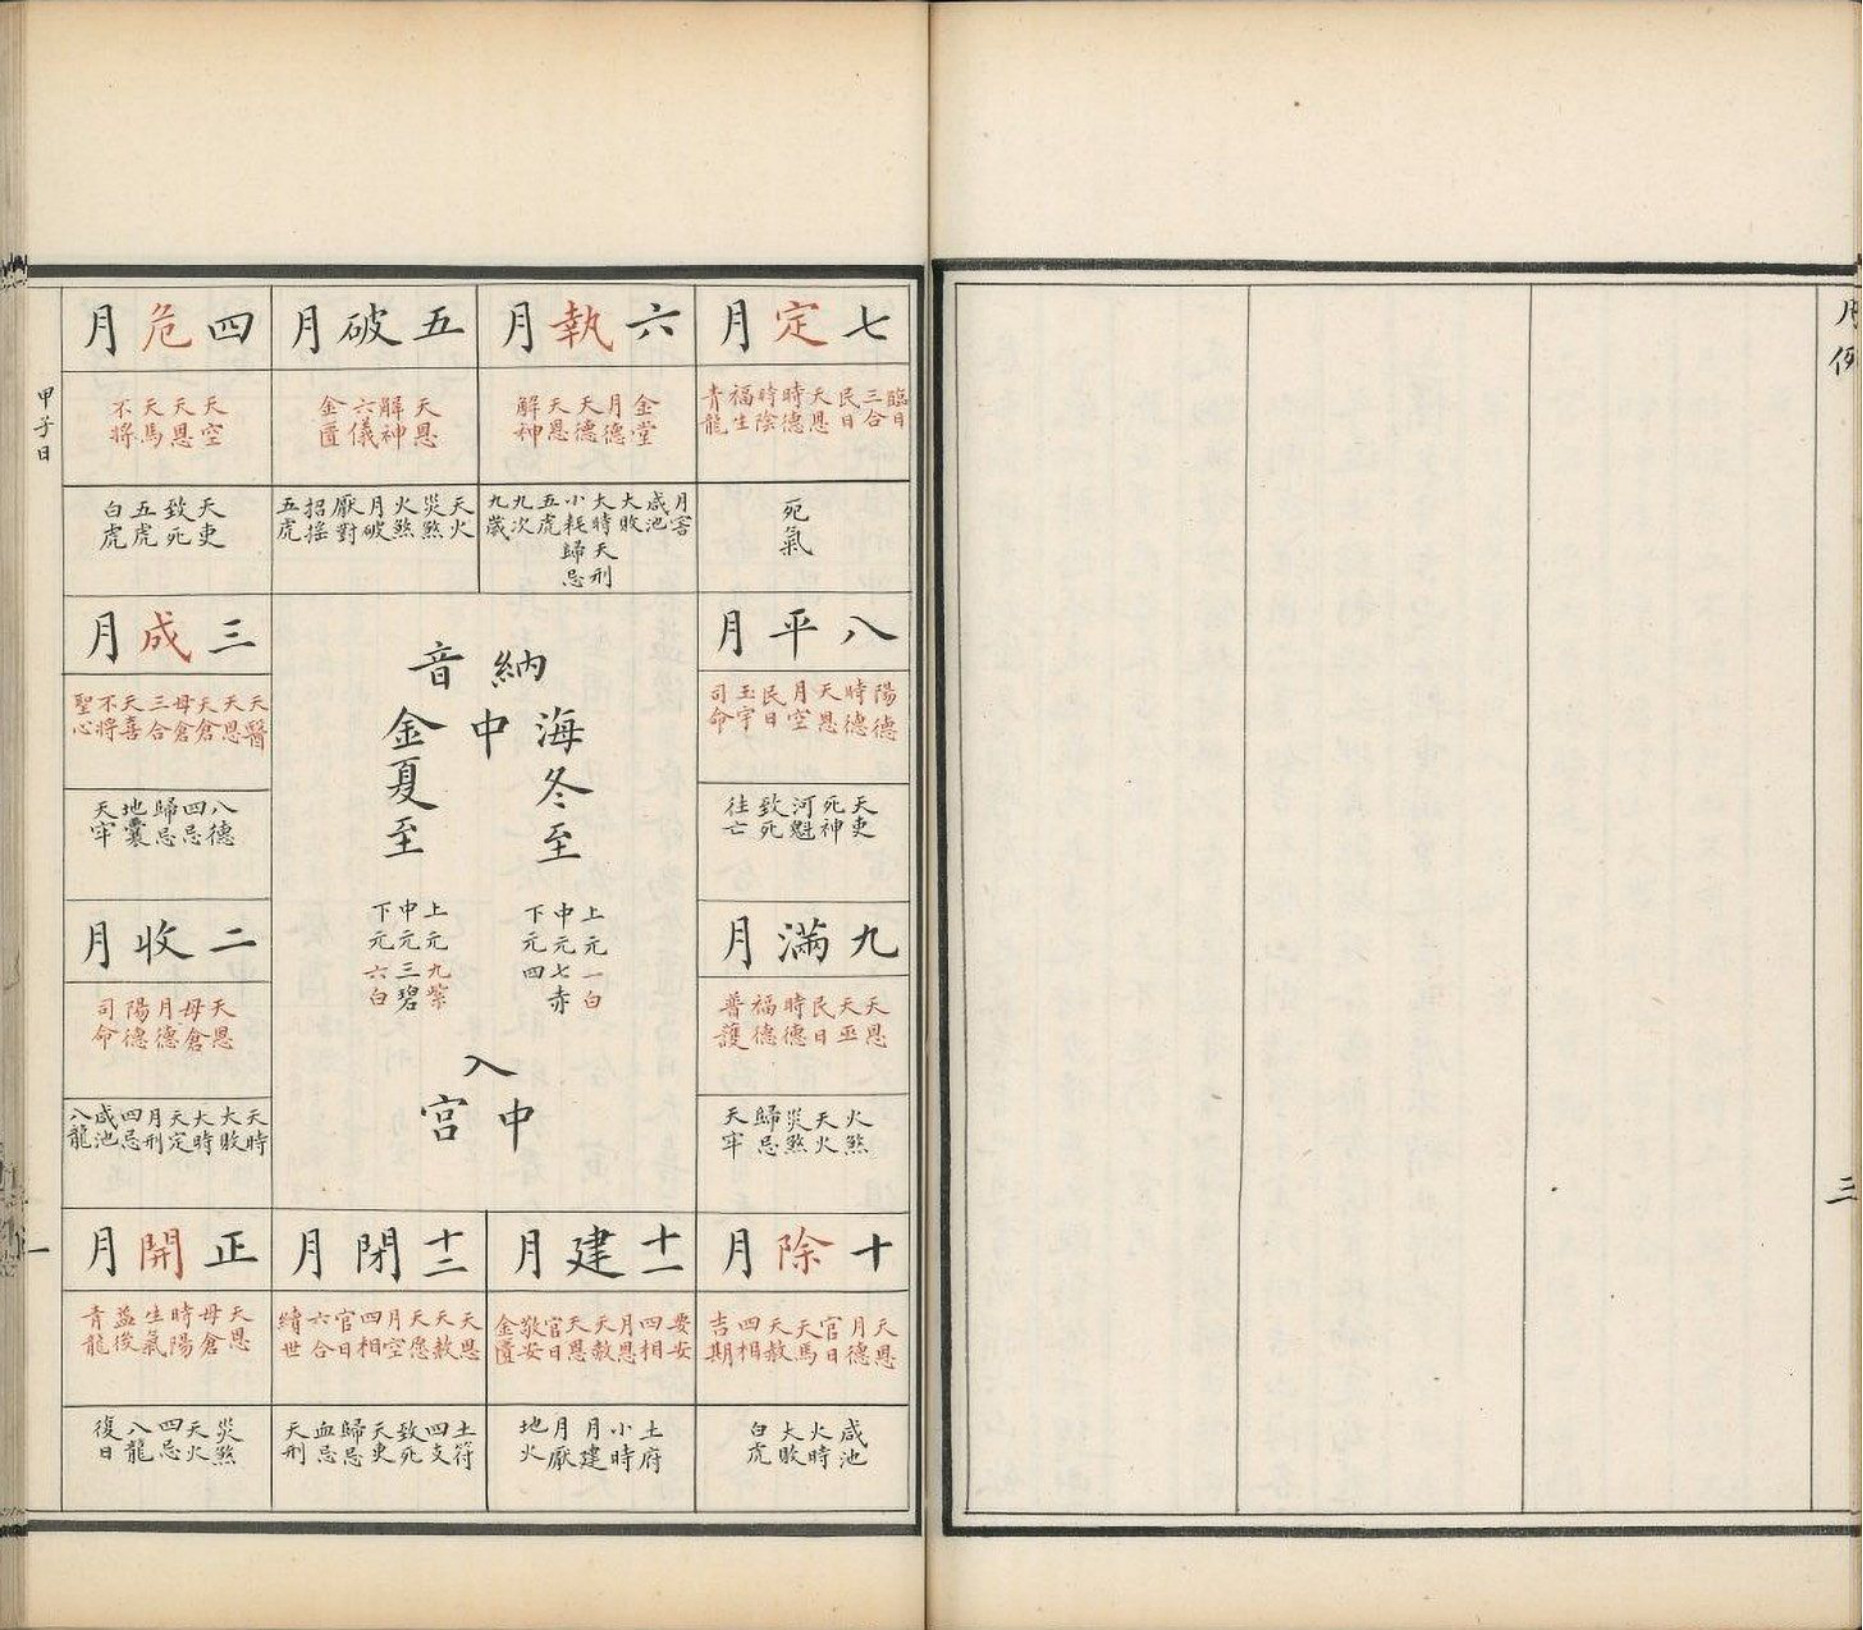 月例
三
七定月
臨日 三合 民日 天恩 時德 時陰 福生 青龍
死氣
六執月
金堂 月德 天德 天恩 解神
月害 咸池 大敗 大時 小耗 五虎 九次 九歲
天刑 歸忌
五破月
天恩 解神 六儀 金匱
天火 災煞 火煞 月破 厭對 招搖 五虎
四危月
天空 天恩 天馬 不將
天吏 致死 五虎 白虎
八平月
陽德 時德 天恩 月空 民日 玉宇 司命
天吏 死神 河魁 致死 往亡
三成月
天醫 天恩 天倉 母倉 三合 天喜 不將 聖心
八德 四忌 歸忌 地囊 天牢
納音
海中金
冬至
上元一白
中元七赤
下元四
夏至
上元九紫
中元三碧
下元六白
入
中宮
九滿月
天恩 天巫 民日 時德 福德 普護
火煞 天火 災煞 歸忌 天牢
二收月
天恩 母倉 月德 陽德 司命
天時 大敗 大時 天定 月刑 四忌 咸池 八龍
十除月
天恩 月德 官日 天馬 天赦 四相 吉期
咸池 火時 大敗 白虎
十一建月
要安 四相 月恩 天赦 天恩 官日 敬安 金匱
土府 小時 月建 月厭 地火
十二閉月
天恩 天赦 天愿 月空 四相 官日 六合 續世
土符 四支 致死 天吏 歸忌 血忌 天刑
正開月
天恩 母倉 時陽 生氣 益後 青龍
災煞 天火 四忌 八龍 復日
甲子日
一